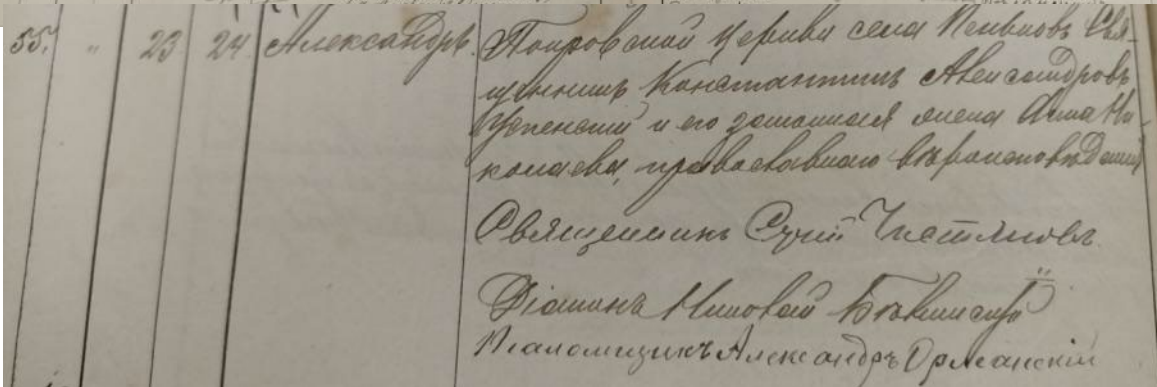 55. " 23 24 Александръ. Покровской церкви села Свя-
щенникъ Константинъ Александровъ
Успенский и его законная жена Анна Ни-
колаева, православнаго вѣроисповѣданий
Священникъ Сергий Чистяковъ.
Діаконъ Николай
Псаломщикъ Александръ Орлеанскій